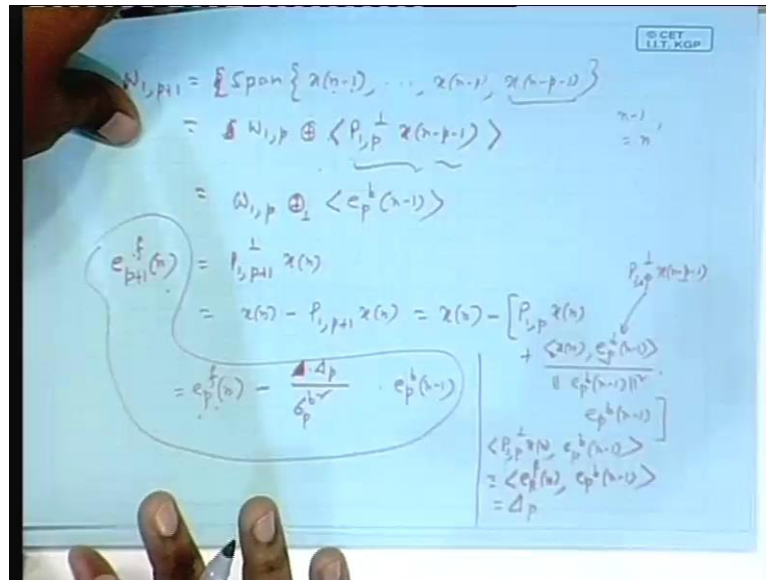 © CET
I.I.T. KGP
W_{1,p+1} = { Span { x(n-1), ..., x(n-p), x(n-p-1) }
= W_{1,p} ⊕ < P_{1,p}^⊥ x(n-p-1) >
n-1
= n'
= W_{1,p} ⊕_⊥ < e_p^b(n-1) >
e_{p+1}^f(n) = P_{1,p+1}^⊥ x(n)
P_{1,p}^⊥ x(n-p-1)
= x(n) - P_{1,p+1} x(n) = x(n) - [ P_{1,p} x(n)
+ <x(n), e_p^b(n-1)> / ||e_p^b(n-1)||² .
e_p^b(n-1) ]
= e_p^f(n) - Δ_p / σ_p^{b²} · e_p^b(n-1)
< P_{1,p}^⊥ x(n), e_p^b(n-1) >
= < e_p^f(n), e_p^b(n-1) >
= Δ_p